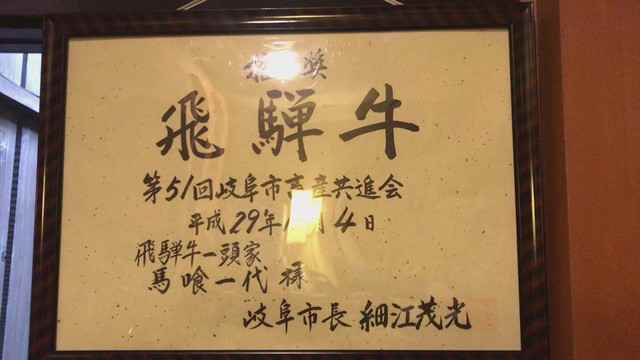 推奨
飛騨牛
第51回岐阜市畜産共進会
平成29年 月4日
飛騨牛一頭家
馬喰一代 様
岐阜市長 細江茂光